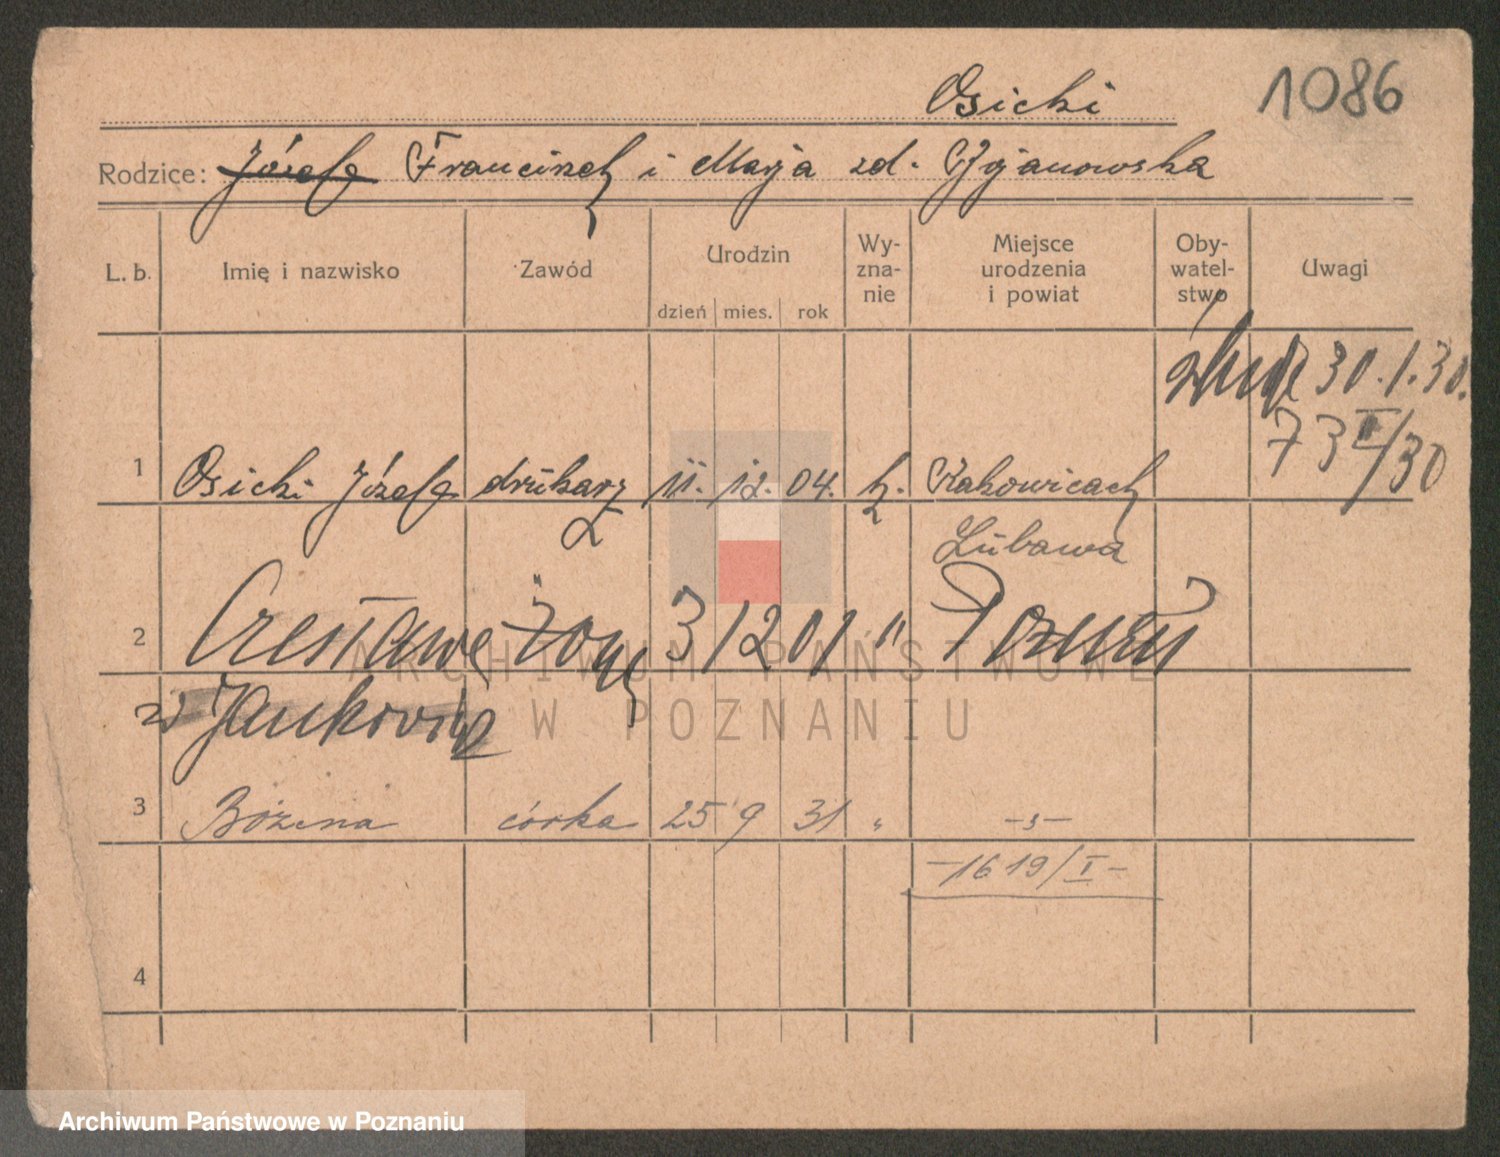 Osicki 1086
Rodzice: Józef Franciszek i Marja zd.
L. b. Imię i nazwisko Zawód Urodzin dzień mies. rok Wy-zna-nie Miejsce urodzenia i powiat Oby-watel-stwo Uwagi
30.1.30.
73 II/30
1 Osicki Józef drukarz 11. 12. 04. k. Rakowicach
Lubawa
2 Czesława żona 3 12 01 " Poznań
Jankowia
3 Bożena córka 25 9 31 " -„-
-1619/I-
4
ARCHIWUM PAŃSTWOWE
W POZNANIU
Archiwum Państwowe w Poznaniu